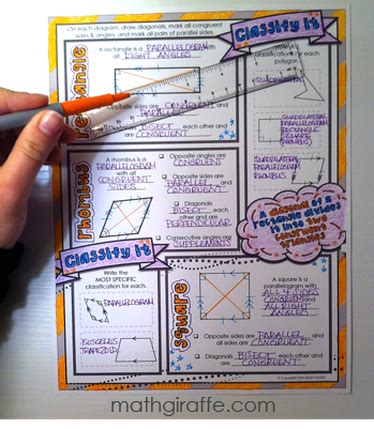 On each diagram, draw diagonals, mark all congruent
sides & angles, and mark all pairs of parallel sides.
Classify it
rectangle
A rectangle is a PARALLELOGRAM with
all RIGHT ANGLES
classifications for each
polygon.
Opposite sides are CONGRUENT
and PARALLEL
BISECT each other and
are CONGRUENT
QUADRILATERAL
PARALLELOGRAM
RECTANGLE
SQUARE
RHOMBUS
QUADRILATERAL
PARALLELOGRAM
RHOMBUS
rhombus
A rhombus is a
PARALLELOGRAM
with all
CONGRUENT
SIDES
Opposite angles are
CONGRUENT
Opposite sides are
PARALLEL and
CONGRUENT
Diagonals
BISECT each
other and are
PERPENDICULAR
Consecutive angles are
SUPPLEMENTS
A diagonal of a
rectangle divides
it into two
congruent
triangles
Classify it
Write the
MOST SPECIFIC
classification for each.
PARALLELOGRAM
ISOSCELES
TRAPEZOID
square
A square is a
parallelogram with
ALL 4 SIDES
CONGRUENT and
ALL RIGHT
ANGLES
Opposite sides are PARALLEL
and CONGRUENT
Diagonals BISECT each other
and are CONGRUENT
mathgiraffe.com